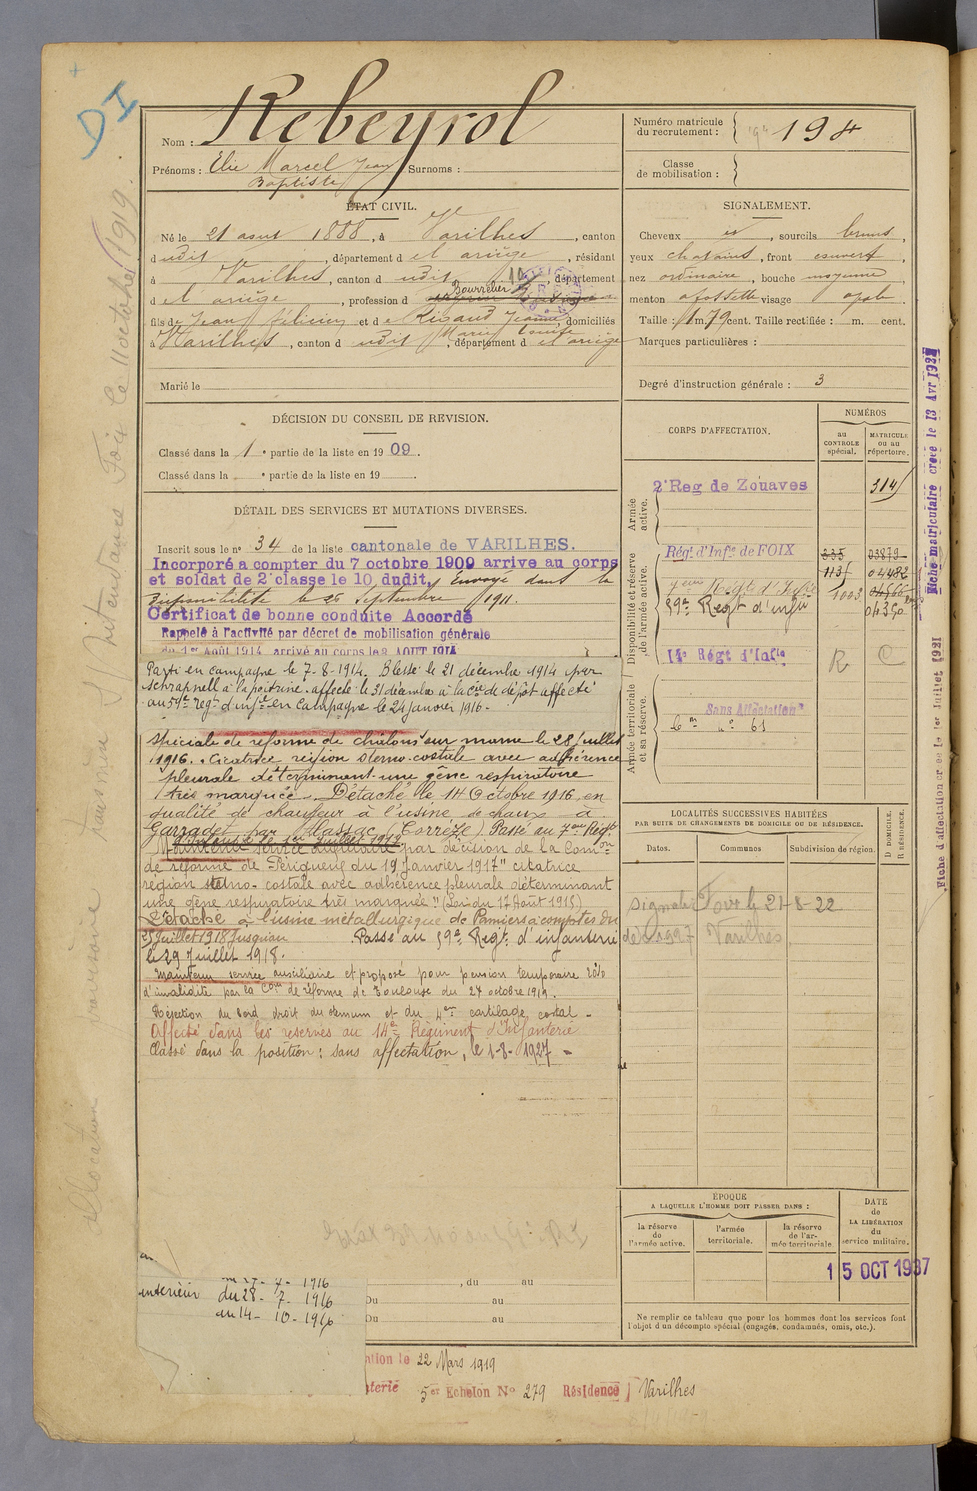 DI
Nom : Rebeyrol
Prénoms : Elie Marcel Jean Surnoms :
Baptiste
Numéro matricule
du recrutement : 194
Classe
de mobilisation :
ÉTAT CIVIL.
Né le 21 aout 1888, à Varilhes, canton
dudit, département del ariège, résidant
à Varilhes, canton dudit, département
del ariège, profession d Bourrelier
fils de Jean Félicien et de Rivaud Jeanne domiciliés
Marie Louise
à Varilhes, canton dudit, département del ariège
Marié le
SIGNALEMENT.
Cheveux et, sourcils bruns,
yeux chatains, front couvert,
nez ordinaire, bouche moyenne
menton a fossette visage ovale
Taille : 1 m. 79 cent. Taille rectifiée : m. cent.
Marques particulières :
Degré d'instruction générale : 3
DÉCISION DU CONSEIL DE REVISION.
Classé dans la 1e partie de la liste en 1909.
Classé dans la e partie de la liste en 19 .
DÉTAIL DES SERVICES ET MUTATIONS DIVERSES.
Inscrit sous le n° 34 de la liste cantonale de VARILHES.
Incorporé a compter du 7 octobre 1909 arrive au corps
et soldat de 2e classe le 10 dudit. Envoyé dans la
disponibilité le 25 Septembre 1911.
Certificat de bonne conduite Accordé
Rappelé à l'activité par décret de mobilisation générale
du 1er Août 1914 arrivé au corps le 2 AOUT 1914
Parti en campagne le 7-8-1914. Blessé le 21 décembre 1914 par
schrapnell à la poitrine. affecté le 31 décembre à la Cie de dépôt affecté
au 59e reg. d'infie en Campagne le 24 janvier 1916.
spéciale de réforme de châlons sur marne le 28 juillet
1916. Cicatrice région sterno-costale avec adhérence
pleurale déterminant une gêne respiratoire
très marquée. Détaché le 14 Octobre 1916 en
qualité de chauffeur à l'usine de chaux à
par Allassac (Corrèze). Passé au 7me Régt
Maintenu service auxiliaire par décision de la Comon
de réforme de Périgueux du 19 janvier 1917 "cicatrice
région sterno-costale avec adhérence pleurale déterminant
une gêne respiratoire très marquée" (Loi du 17 Août 1915)
Détaché à l'usine métallurgique de Pamiers à compter du
25 juillet 1918 jusqu'au Passé au 59e Régt d'infanterie
le 29 juillet 1918.
Maintenu service auxiliaire et proposé pour pension temporaire 20%
d'invalidité par la Con de réforme de Toulouse du 27 octobre 1919.
Réjection du bord droit du sternum et du 4me cartilage costal.
Affecté dans les réserves au 14e Régiment d'Infanterie
Classé dans la position : sans affectation, le 1-8-1927
CORPS D'AFFECTATION.
NUMÉROS
au
CONTROLE
spécial.
MATRICULE
ou au
répertoire.
Armée
active.
2e Reg de Zouaves 314
Disponibilité et réserve
de l'armée active.
Régt d'Infie de FOIX 335 03873
1135 04482
1003 04566
59e Regt d'infie 04350
Armée territoriale
et sa réserve.
14e Régt d'Infie R C
Sans Affectation
le n° 61
LOCALITÉS SUCCESSIVES HABITÉES
PAR SUITE DE CHANGEMENTS DE DOMICILE OU DE RÉSIDENCE.
Dates. Communes Subdivision de région. D DOMICILE, R RÉSIDENCE.
signalé Foix le 21-8-22
Varilhes
ÉPOQUE
A LAQUELLE L'HOMME DOIT PASSER DANS :
la réserve
de
l'armée active.
l'armée
territoriale.
la réserve
de l'ar-
mée territoriale.
DATE
de
LA LIBÉRATION
du
service militaire.
15 OCT 1937
Ne remplir ce tableau que pour les hommes dont les services font
l'objet d'un décompte spécial (engagés, condamnés, omis, etc.).
, du au
Du au
Du au
1916
intérieur du 28 - 7 - 1916
au 14 - 10 - 1916
22 Mars 1919
5er Echelon N° 279 Résidence Varilhes
Fiche matriculaire créée le 13 Avr 193
Fiche d'affectation créée le 1er Juillet 1921
Allocation provisoire Intendance Foix le 11 octobre 1919.